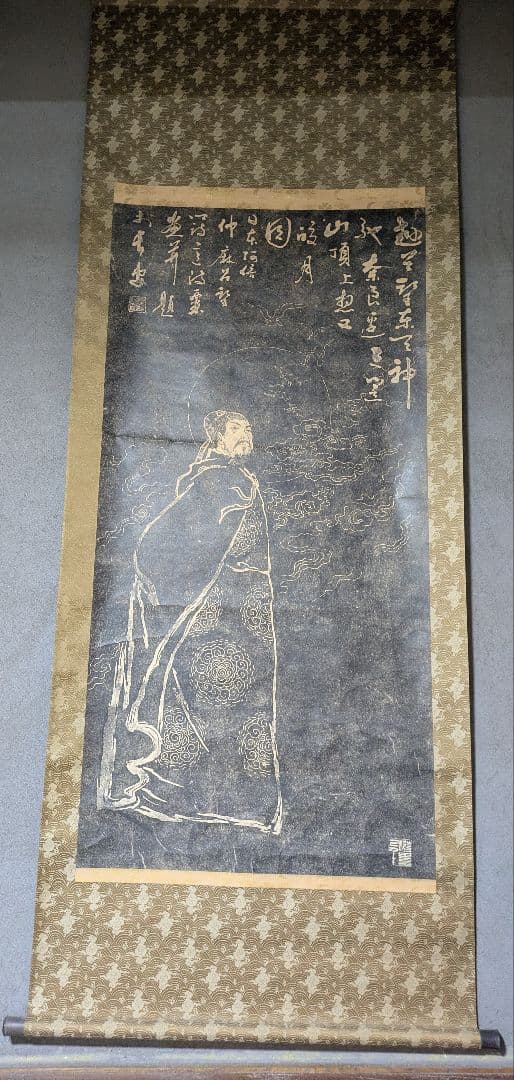 翹首望東天神
馳奈良邊三笠
山頂上想又
皎月
圓
日本阿倍
仲麻呂望
畫并題